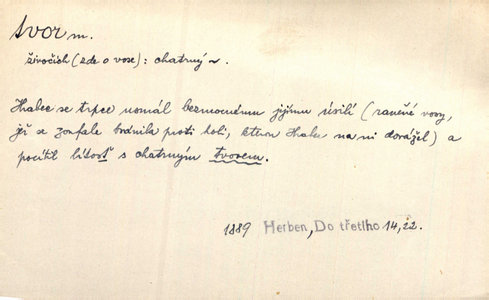 tvor m.
živočich (zde o vose): chatrný ~.
Hrabec se trpce usmál bezmocnému jejímu úsilí (raněné vosy,
jež se zoufale bránila proti holi, kterou Hrabec na ni dorážel) a
pocítil lítost s chatrným tvorem.
1889 Herben, Do třetího 14, 22.